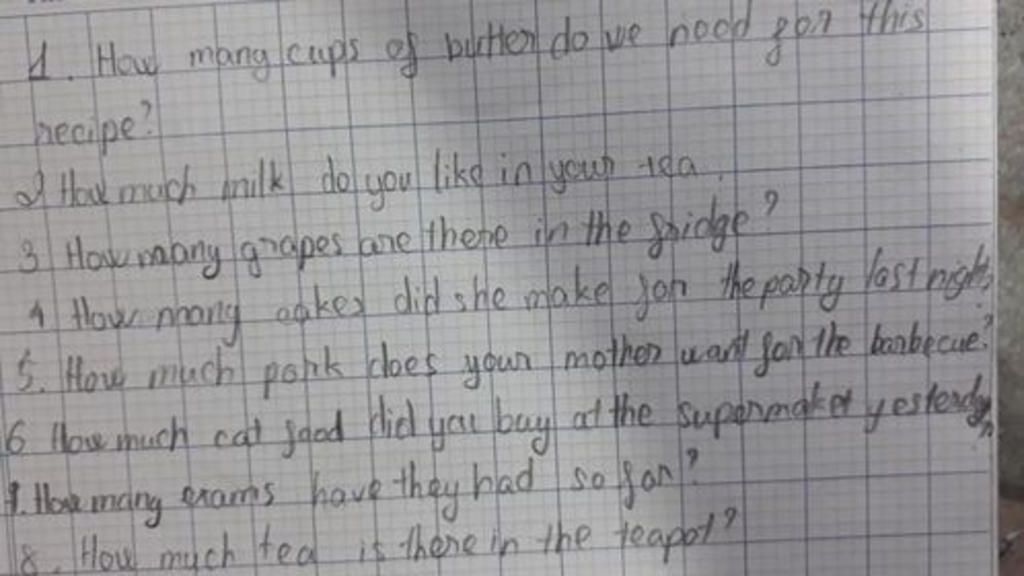 1. How many cups of butter do we need for this
recipe?
2 How much milk do you like in your tea.
3 How many grapes are there in the fridge?
4 How many cakes did she make for the party last night
5. How much pork does your mother want for the barbecue?
6 How much cat food did you buy at the supermaket yesterdy
7. How many exams have they had so far?
8. How much tea is there in the teapot?